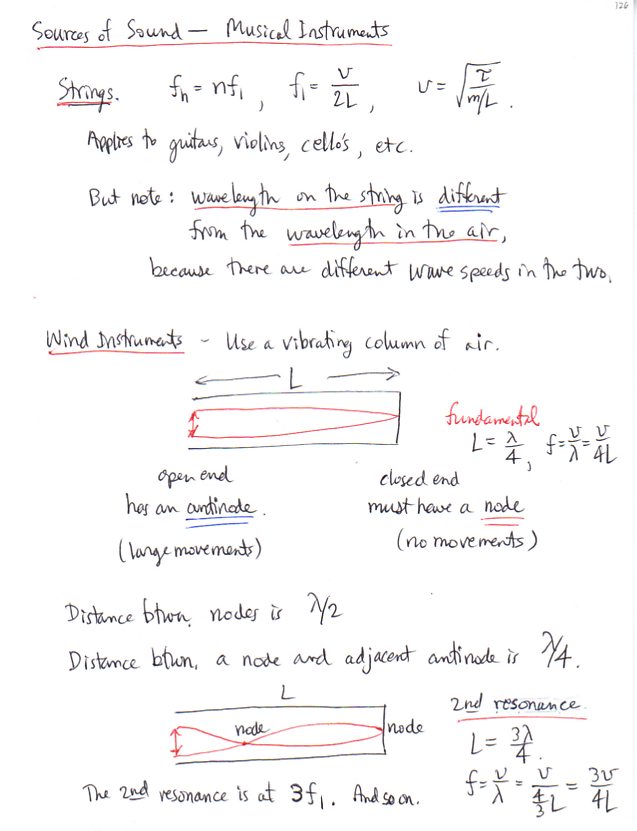 126
Sources of Sound — Musical Instruments
Strings. fn = nf1, f1 = v/2L, v = √(τ/(m/L)).
Applies to guitars, violins, cello's, etc.
But note: wavelength on the string is different
from the wavelength in the air,
because there are different wave speeds in the two.
Wind Instruments - Use a vibrating column of air.
L
fundamental
L = λ/4, f = v/λ = v/4L
open end closed end
has an antinode. must have a node
(large movements) (no movements)
Distance btwn. nodes is λ/2
Distance btwn. a node and adjacent antinode is λ/4.
L
2nd resonance.
node node
L = 3λ/4.
f = v/λ = v/(4/3 L) = 3v/4L
The 2nd resonance is at 3f1. And so on.